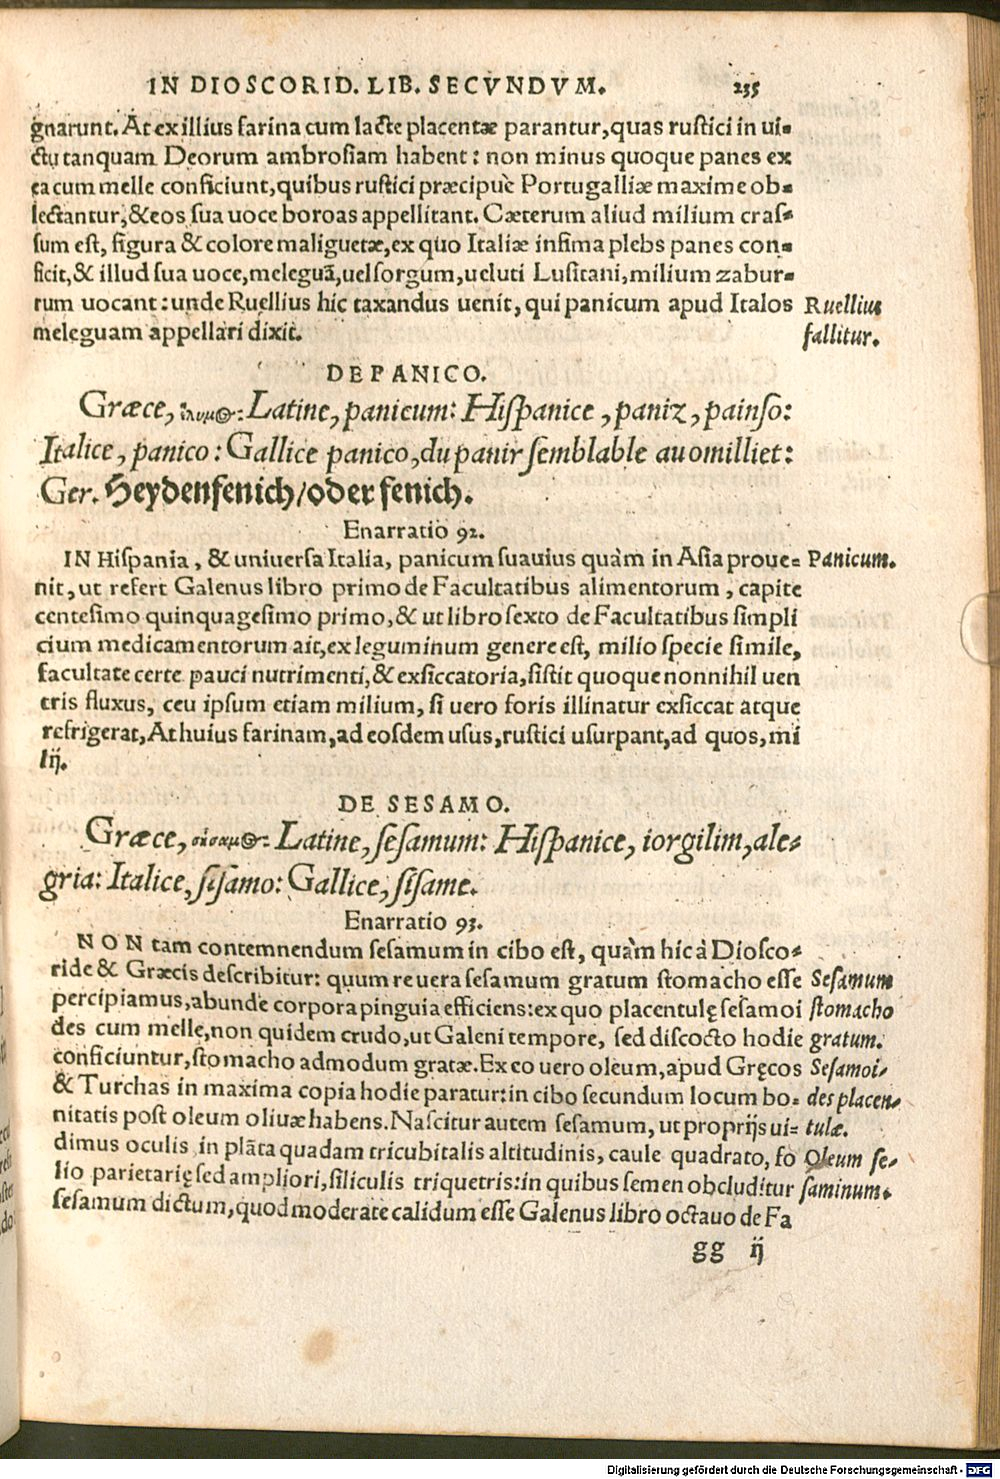 IN DIOSCORID. LIB. SECVNDVM. 235
gnarunt. At ex illius farina cum lacte placentæ parantur, quas rustici in ui-
ctu tanquam Deorum ambrosiam habent: non minus quoque panes ex
ea cum melle conficiunt, quibus rustici præcipuè Portugalliæ maxime ob-
lectantur, & eos sua uoce boroas appellitant. Cæterum aliud milium cras-
sum est, figura & colore maliguetæ, ex quo Italiæ infima plebs panes con-
ficit, & illud sua uoce, meleguã, uel sorgum, ueluti Lusitani, milium zabur-
rum uocant: unde Ruellius hic taxandus uenit, qui panicum apud Italos
meleguam appellari dixit.
Ruellius
fallitur.
DE PANICO.
Græce, ἔλυμος: Latine, panicum: Hispanice, paniz, painso:
Italice, panico: Gallice panico, du panir semblable au omilliet:
Ger. Heydenfenich/oder fenich.
Enarratio 92.
IN Hispania, & uniuersa Italia, panicum suauius quàm in Asia proue-
nit, ut refert Galenus libro primo de Facultatibus alimentorum, capite
centesimo quinquagesimo primo, & ut libro sexto de Facultatibus simpli
cium medicamentorum ait, ex leguminum genere est, milio specie simile,
facultate certe pauci nutrimenti, & exsiccatoria, sistit quoque nonnihil uen
tris fluxus, ceu ipsum etiam milium, si uero foris illinatur exsiccat atque
refrigerat, At huius farinam, ad eosdem usus, rustici usurpant, ad quos, mi
lij.
Panicum.
DE SESAMO.
Græce, σίσαμος: Latine, sesamum: Hispanice, iorgilim, ale-
gria: Italice, sisamo: Gallice, sisame.
Enarratio 93.
NON tam contemnendum sesamum in cibo est, quàm hic à Diosco-
ride & Græcis describitur: quum reuera sesamum gratum stomacho esse
percipiamus, abunde corpora pinguia efficiens: ex quo placentulę sesamoi
des cum melle, non quidem crudo, ut Galeni tempore, sed discocto hodie
conficiuntur, stomacho admodum gratæ. Ex eo uero oleum, apud Gręcos
& Turchas in maxima copia hodie paratur: in cibo secundum locum bo-
nitatis post oleum oliuæ habens. Nascitur autem sesamum, ut proprijs ui-
dimus oculis in plãta quadam tricubitalis altitudinis, caule quadrato, fo
lio parietarię sed ampliori, siliculis triquetris: in quibus semen obcluditur
sesamum dictum, quod moderate calidum esse Galenus libro octauo de Fa
Sesamum
stomacho
gratum.
Sesamoi-
des placen-
tulæ.
Oleum se-
saminum.
gg ij
Digitalisierung gefördert durch die Deutsche Forschungsgemeinschaft - DFG